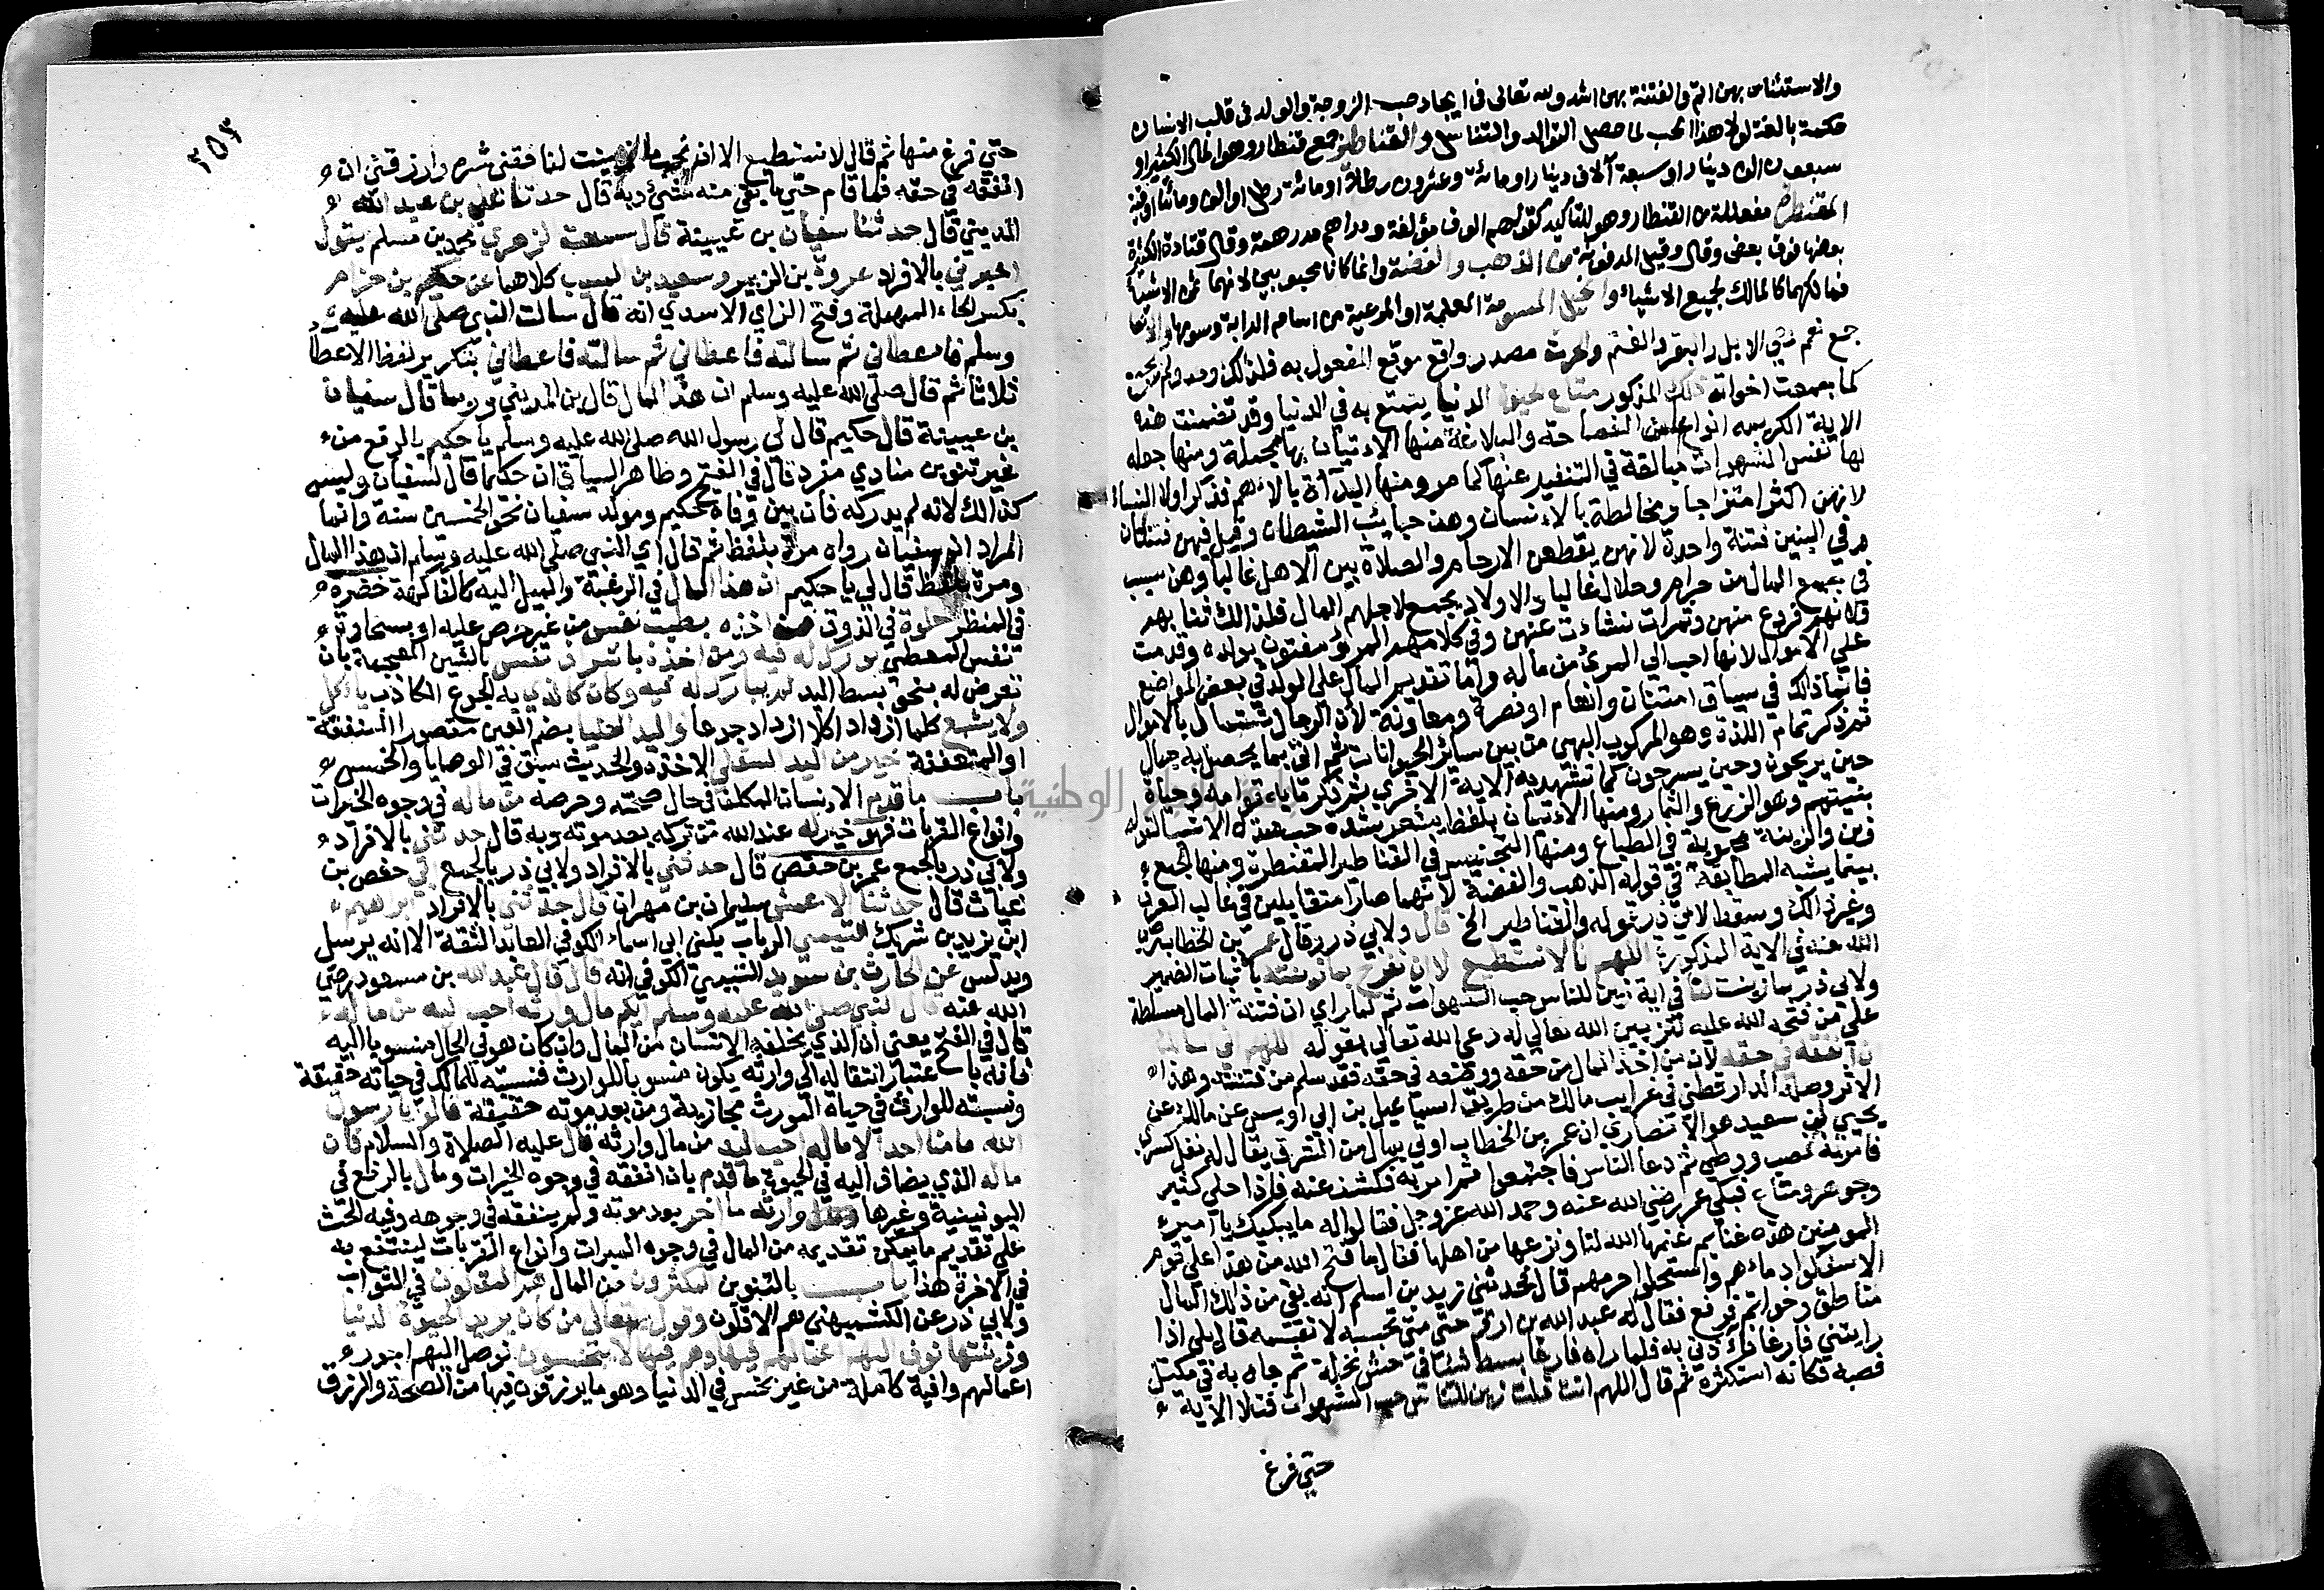 والاستئناس بهن اتم والفتنة بهن اشد ولله تعالى في ايجاد حب الزوجة والولد في قلب الانسان
حكمة بالغة لولا هذا الحب لما حصل التوالد والتناسل والقناطير جمع قنطار وهو المال الكثير او
سبعون الف دينار او سبعة آلاف دينار او مائة وعشرون رطلا او مائة رطل او الف ومائتا اوقية
المقنطرة مفعللة من القنطار وهو للتاكيد كقولهم الوف مؤلفة ودراهم مدرهمة وقال قتادة الكثيرة
بعضها فوق بعض وقال وقيل المدفونة من الذهب والفضة وانما كانا محبوبين لانهما ثمن الاشياء
فمالكهما كالمالك لجميع الاشياء والخيل المسومة المعلمة او المرعية من اسام الدابة وسومها والانعام
جمع نعم وهي الابل والبقر والغنم والحرث مصدر واقع موقع المفعول به فلذلك وحد ولم يجمع
كما جمعت اخواته ذلك المذكور متاع الحيوة الدنيا يتمتع به في الدنيا وقد تضمنت هذه
الاية الكريمه انواعا من الفصاحة والبلاغة منها الاتيان بها مجملة ومنها جعله
لها نفس الشهوات مبالغة في التنفير عنها كما مر ومنها البدآة بالاهم فذكر اولا النساء
لانهن اكثر امتزاجا ومخالطة بالانسان وهن حبايئب الشيطان وقيل فيهن فتنتان
وفي البنين فتنة واحدة لانهن يقطعن الارحام والصلاة بين الاهل غالبا وهن سبب
في جمع المال من حرام وحلال غالبا والاولاد يجمع لاجلهم المال فلذالك ثنا بهم
ولانهم فروع منهن وثمرات نشات عنهن وفي كلامهم المرئ مفتون بولده وقدمت
علي الاموال لانها احب الي المرئ من ماله واما تقديم المال علي الولد في بعض المواضع
فانما ذالك في سياق امتنان وانعام او نصرة ومعاونة لان الرجال تستمال بالاموال
ثم ذكر تمام اللذة وهو المركوب البهي من بين سائر الحيوانات ثم اتي بما يحصل به جمال
حين يريحون وحين يسرحون كما تشهد به الاية الاخري ثم ذكر ما به قوامه وحياة
بنيتهم وهو الزرع والثمار ومنها الاتيان بلفظ يشعر بشدة حب هذه الاشيا لقوله
زين والزينة محبوبة في الطباع ومنها التجنيس في القناطير المقنطرة ومنها الجمع
بينما يشبه المطابقة في قوله الذهب والفضة لانهما صارا متقابلين في غالب العرف
وغير ذالك وسقط لابي ذر قوله والقناطير الخ قال ولابي ذر وقال عمر بن الخطاب رضي
الله عنه في الاية المذكورة اللهم انا لا نستطيع الا ان نفرح بما زينته باثبات الضمير
ولابي ذر بما زينت لنا في اية زين للناس حب الشهوات ثم لما راي ان فتنة المال مسلطة
علي من فتحه الله عليه لتزيين الله تعالي له دعي الله تعالي بقوله اللهم اني سالك
ان انفقه في حقه لان من اخذ المال من حقه ووضعه في حقه فقد سلم من فتنته وهذا
الاثر وصله الدارقطني في غرايب مالك من طريق اسماعيل بن ابي اويس عن مالك عن
يحيي بن سعيد هو الانصاري ان عمر بن الخطاب اوتي بمال من المشرق يقال له نفل كسري
فامر به فصب وغطي ثم دعا الناس فاجتمعوا ثم امر به فكشف عنه فاذا حلي كثير
وجوهر ومتاع فبكي عمر رضي الله عنه وحمد الله عز وجل فقالوا له ما يبكيك يا امير
المومنين هذه غنايم غنمها الله لنا ونزعها من اهلها فقال ما فتح الله من هذا علي قوم
الا سفكوا دماءهم واستحلوا حرمهم قال فحدثني زيد بن اسلم انه بقي من ذلك المال
مناطق وخواتم فرفع فقال له عبد الله بن ارقم حتي متي تحبسه لا تقسمه قال بلي اذا
رايتني فارغا فآذني به فلما راه فارغا بسط شيئا في حش نخلة ثم جاء به في مكتل
فصبه فكانه استكثره ثم قال اللهم انت قلت زين للناس حب الشهوات فتلا الاية
حتي فرغ
٢٥٣
حتي فرغ منها ثم قال لا نستطيع الا ان نحب ما زينت لنا فقني شره وارزقني ان
انفقه في حقه فما قام حتي ما بقي منه شيئ وبه قال حدثنا علي بن عبد الله
المديني قال حدثنا سفيان بن عيينة قال سمعت الزهري محمد بن مسلم يقول
اخبرني بالافراد عروة بن الزبير وسعيد بن المسيب كلاهما عن حكيم بن حزام
بكسر الحاء المهملة وفتح الزاي الاسدي انه قال سالت النبي صلى الله عليه
وسلم فاعطاني ثم سالته فاعطاني ثم سالته فاعطاني بتكرير لفظ الاعطا
ثلاثا ثم قال صلي الله عليه وسلم ان هذا المال قال بن المديني وربما قال سفيان
بن عيينة قال حكيم قال لي رسول الله صلى الله عليه وسلم يا حكيم بالرفع من
غير تنوين منادي مفرد قال في الفتح وظاهر السياق ان حكيما قال لسفيان وليس
كذالك لانه لم يدركه فان بين وفاة حكيم ومولد سفيان نحو الخمسين سنة وانما
المراد ان سفيان رواه مرة بلفظ ثم قال اي النبي صلى الله عليه وسلم ان هذا المال
ومرة بلفظ قال لي يا حكيم ان هذا المال في الرغبة والميل اليه كالفاكهة خضرة
في المنظر حلوة في الذوق فمن اخذه بطيب نفس من غير حرص عليه او بسخاوة
نفس المعطي بورك له فيه ومن اخذه باشراف نفس بالشين المعجمة بان
تعرض له بنحو بسط اليد لم يبارك له فيه وكان كالذي به الجوع الكاذب ياكل
ولا يشبع كلما ازداد اكلا ازداد جوعا واليد العليا بضم العين مقصورا المنفقة
او المتعففة خير من اليد السفلي الاخذة والحديث سبق في الوصايا والخمس
باب ما قدم الانسان المكلف في حال صحته وحرصه من ماله في وجوه الخيرات
وانواع القربات فهو خير له عند الله من تركه بعد موته وبه قال حدثني بالافراد
ولابي ذر بالجمع عمر بن حفص قال حدثني بالافراد ولابي ذر بالجمع ابي حفص بن
غياث قال حدثنا الاعمش سليمان بن مهران قال حدثني بالافراد ابراهيم
ابن يزيد بن شريك التيمي الرباب يكني ابي اسماء الكوفي العابد الثقة الا انه يرسل
ويدلس عن الحارث بن سويد التيمي الكوفي انه قال قال عبد الله بن مسعود رضي
الله عنه قال النبي صلى الله عليه وسلم ايكم مال وارثه احب اليه من ماله
قال في الفتح يعني ان الذي يخلفه الانسان من المال وان كان هو في الحال منسوبا اليه
فانه باعتبار انتقاله الي وارثه يكون منسوبا للوارث فنسبته للمالك في حياته حقيقة
ونسبته للوارث في حياة المورث مجازية ومن بعد موته حقيقة قالوا يا رسول
الله ما منا احد الا ماله احب اليه من مال وارثه قال عليه الصلاة والسلام فان
ماله الذي يضاف اليه في الحيوة ما قدم بان انفقه في وجوه الخيرات ومال بالرفع في
اليونينية وغيرها ومال وارثه ما اخر بعد موته ولم ينفقه في وجوهه وفيه الحث
علي تقديم ما يمكن تقديمه من المال في وجوه المبرات وانواع القربات لينتفع به
في الاخرة هذا باب بالتنوين المكثرون من المال هم المقلون في الثواب
ولابي ذر عن الكشميهني هم الاقلون وقوله تعالي من كان يريد الحيوة الدنيا
وزينتها نوف اليهم اعمالهم فيها وهم فيها لا يبخسون نوصل اليهم اجور
اعمالهم وافية كاملة من غير بخس في الدنيا وهو ما يرزقون فيها من الصحة والرزق